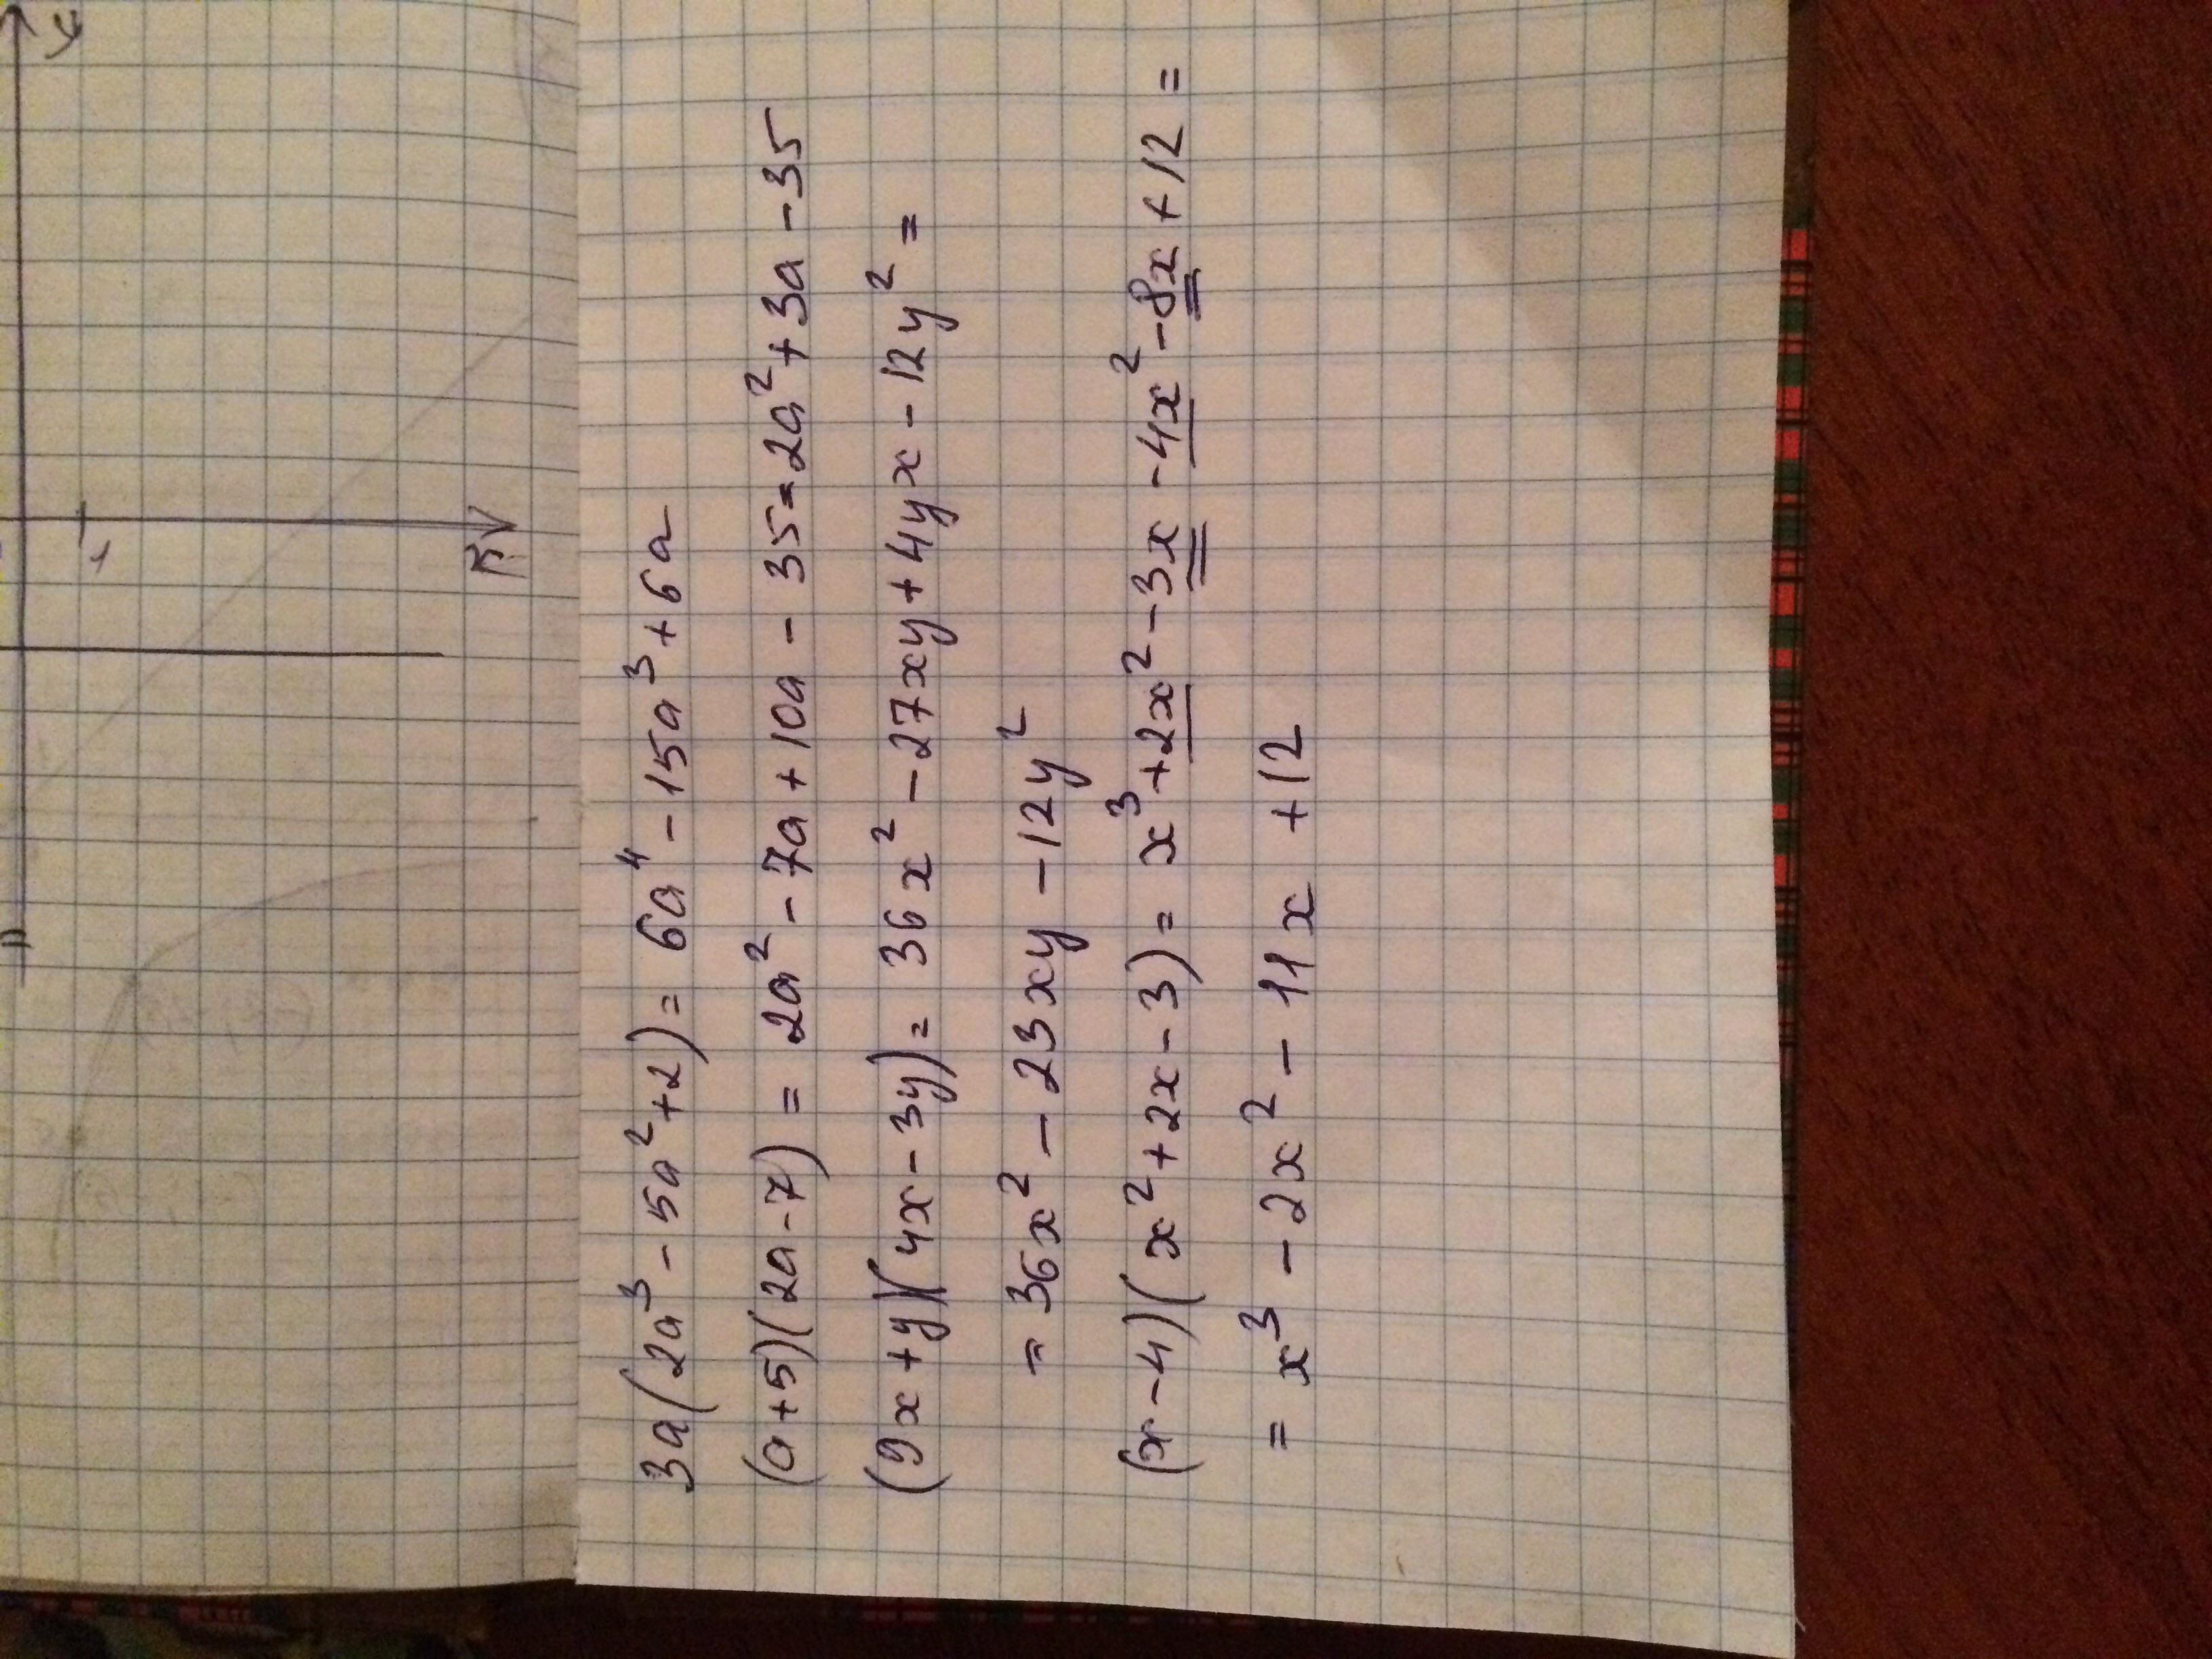 3a(2a³ - 5a² + 2) = 6a⁴ - 15a³ + 6a
(a + 5)(2a - 7) = 2a² - 7a + 10a - 35 = 2a² + 3a - 35
(9x + y)(4x - 3y) = 36x² - 27xy + 4yx - 12y² =
= 36x² - 23xy - 12y²
(x - 4)(x² + 2x - 3) = x³ + 2x² - 3x - 4x² - 8x + 12 =
= x³ - 2x² - 11x + 12